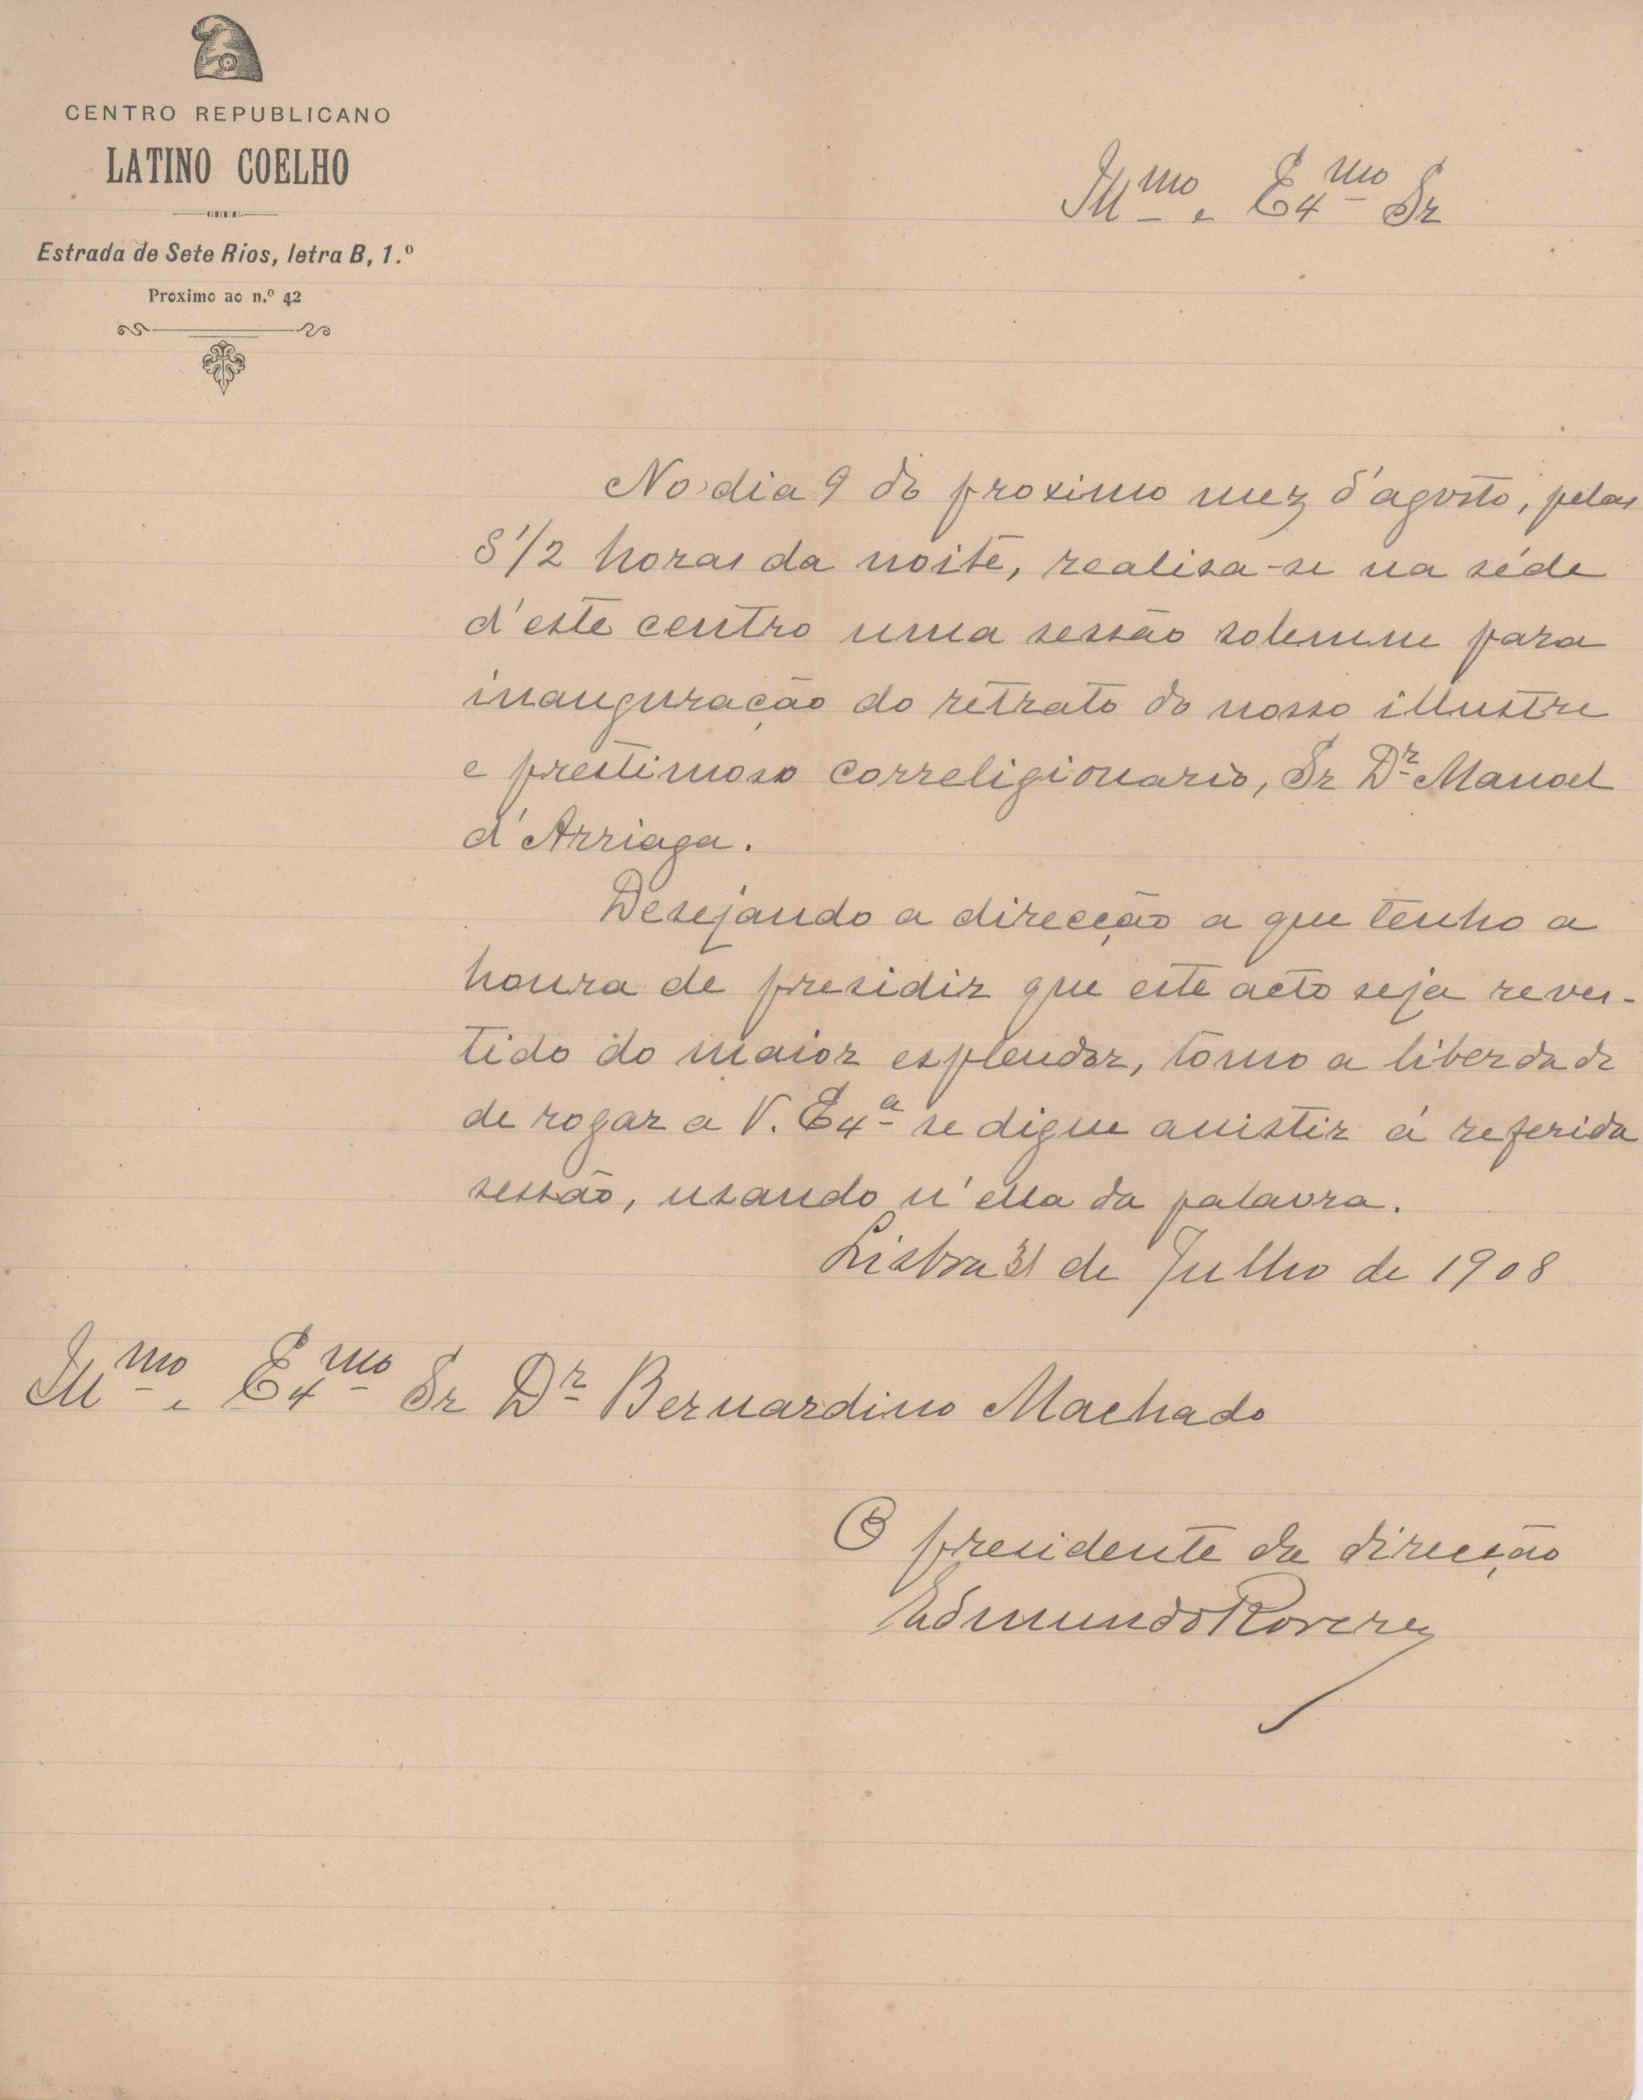 CENTRO REPUBLICANO
LATINO COELHO
Estrada de Sete Rios, letra B, 1.º
Proximo ao n.º 42
Ill.mo e Ex.mo Sr
No dia 9 do proximo mez d'agosto, pelas
8 1/2 horas da noite, realisa-se na séde
d'este centro uma sessão solemne para
inauguração do retrato do nosso illustre
e prestimoso correligionario, Sr Dr Manoel
d'Arriaga.
Desejando a direcção a que tenho a
honra de presidir que este acto seja reves-
tido do maior esplendor, tômo a liberdade
de rogar a V. Exa se digne assistir á referida
sessão, usando n'ella da palavra.
Lisboa 31 de Julho de 1908
Ill.mo e Ex.mo Sr Dr Bernardino Machado
O presidente da direcção
Edmundo